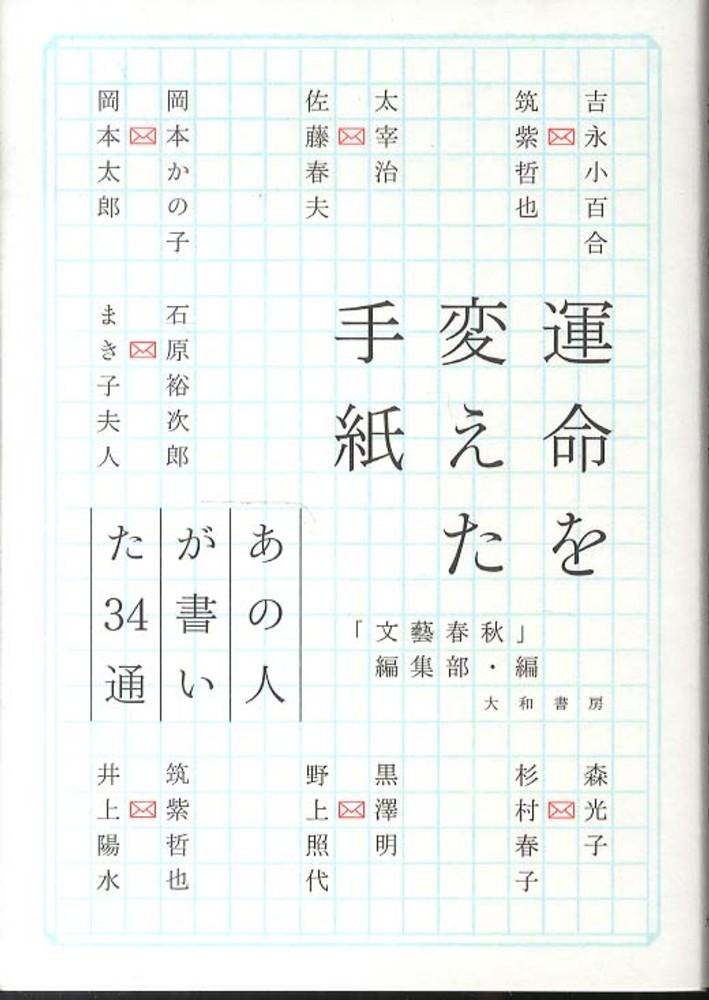 吉永小百合
筑紫哲也
太宰治
佐藤春夫
岡本かの子
岡本太郎
運命を
変えた
手紙
石原裕次郎
まき子夫人
あの人
が書い
た34通
「文藝春秋」
編集部・編
大和書房
森光子
杉村春子
黒澤明
野上照代
筑紫哲也
井上陽水